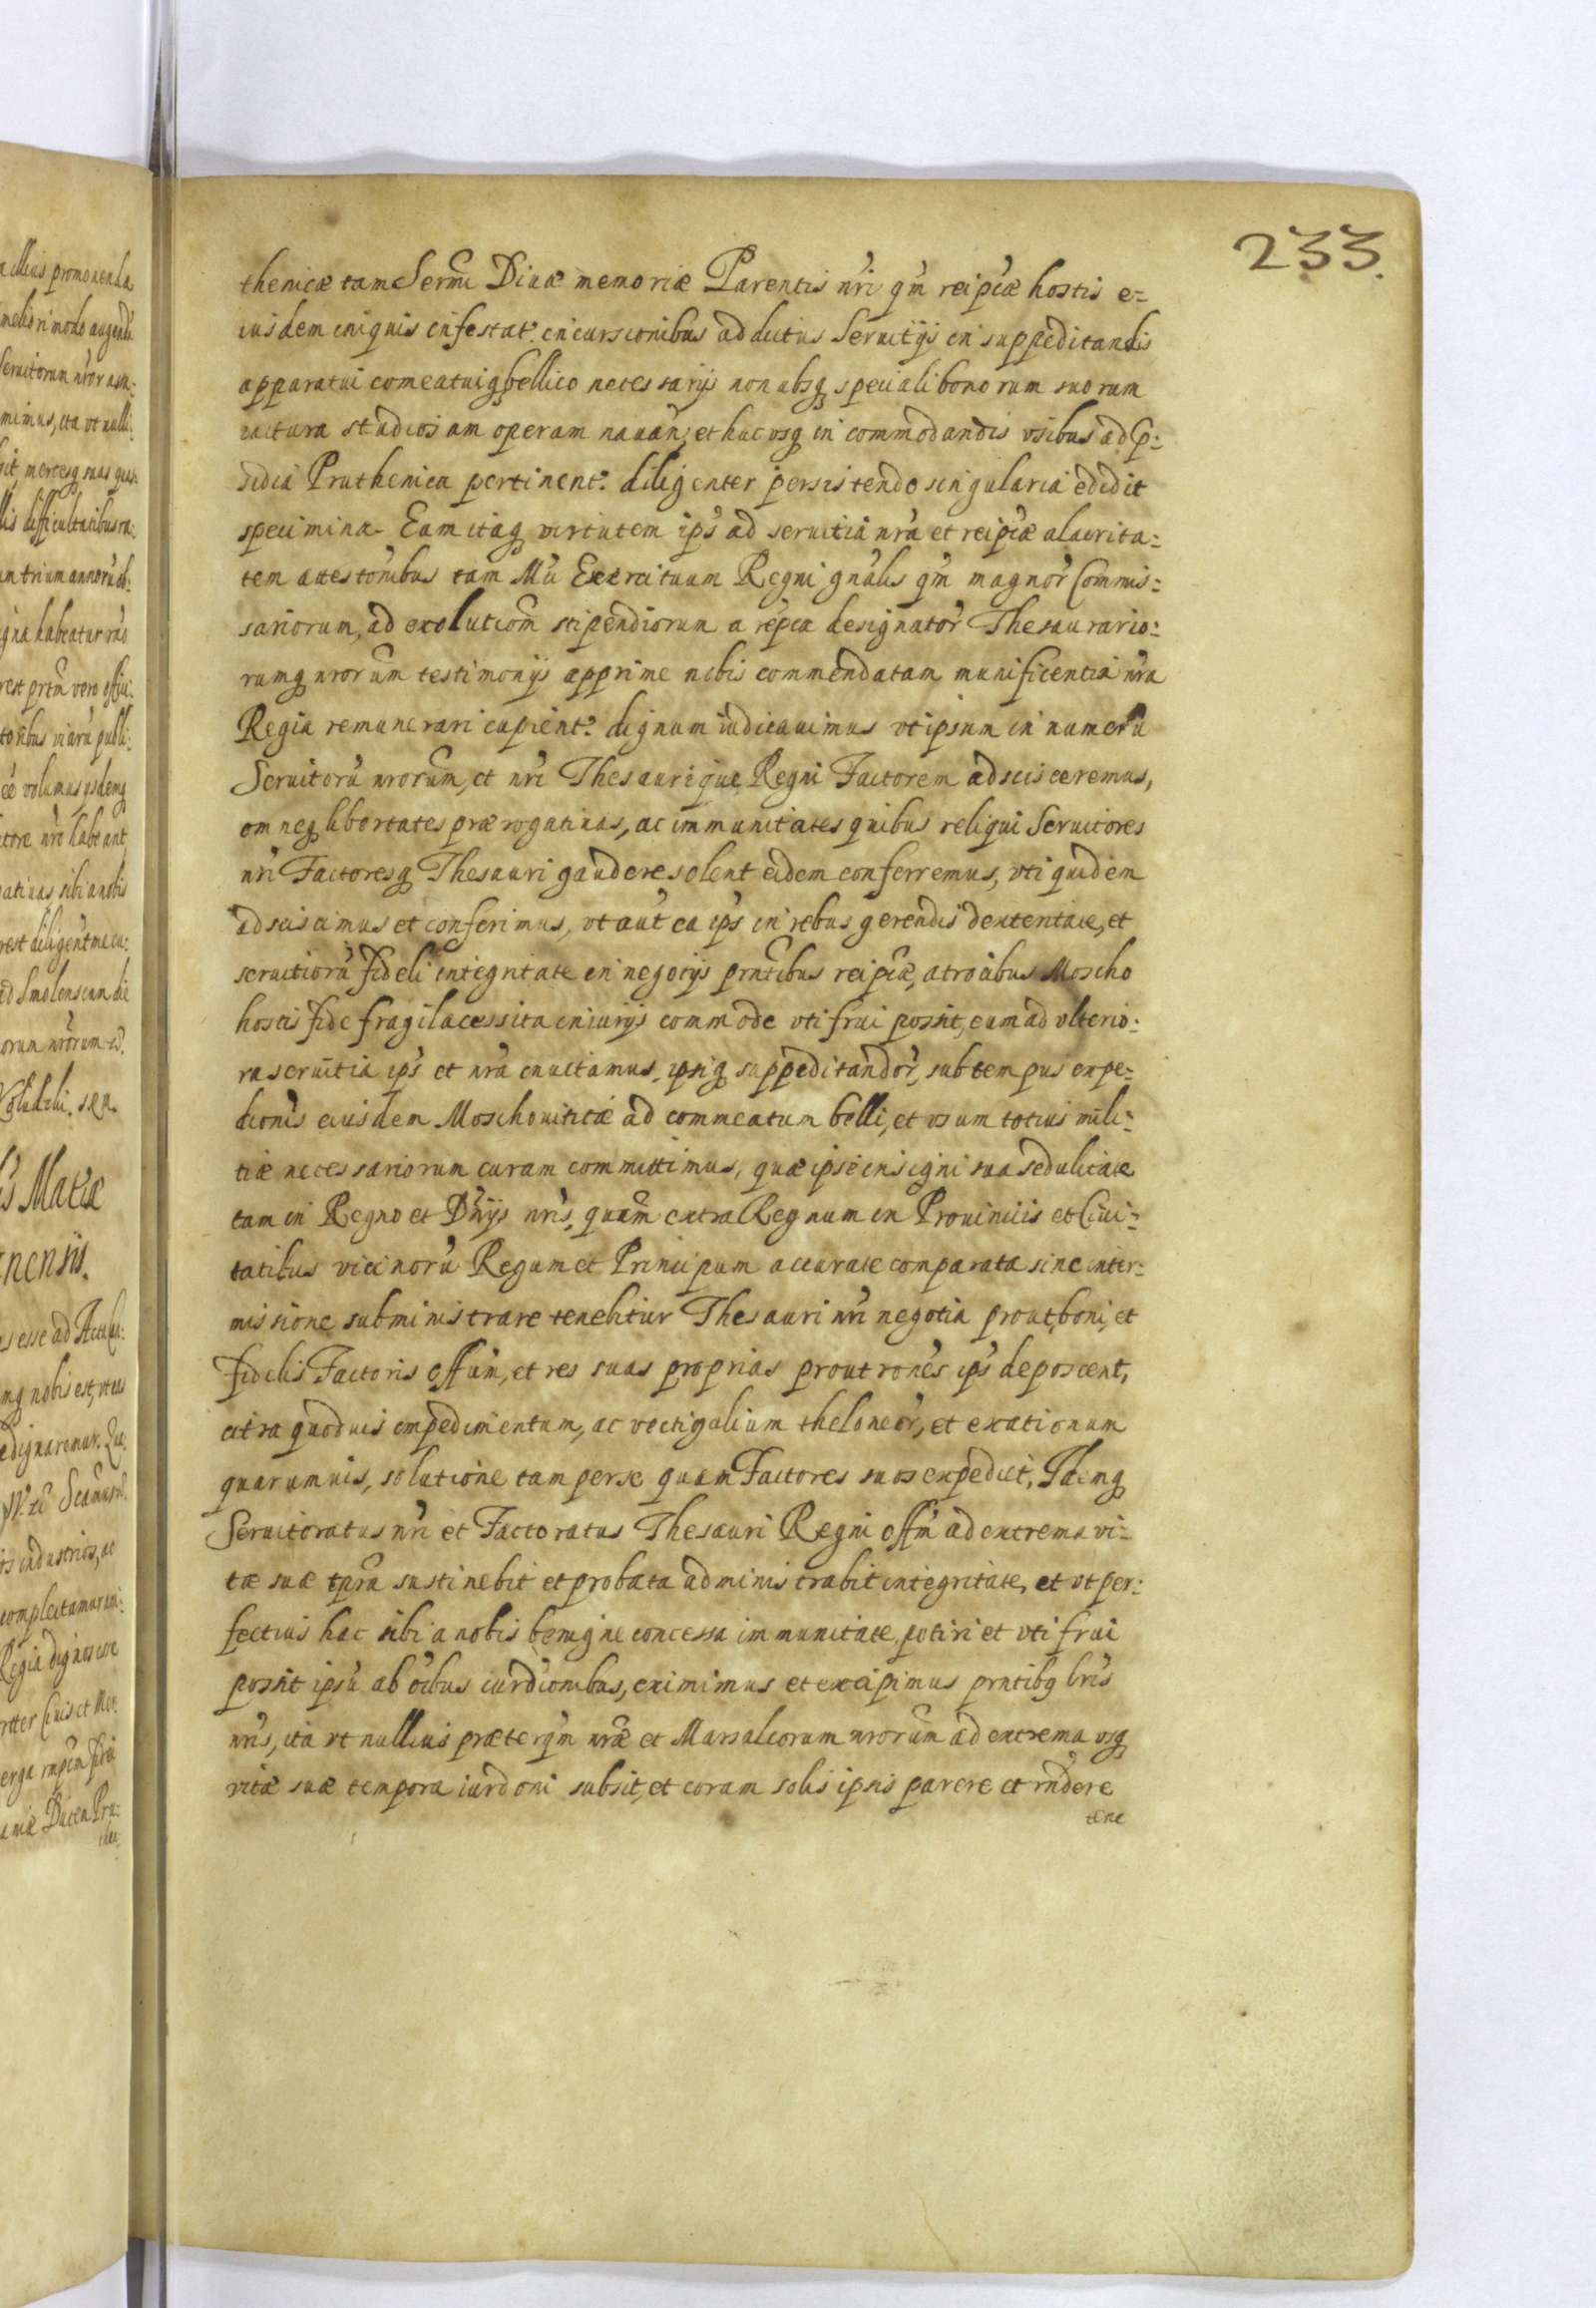 233.
thenicæ tam Sermi Diuæ memoriæ Parentis nri qm reipcæ hostis e=
iusdem iniquis infestat. incursionibus addictus Seruitijs in suppeditandis
apparatui comeatuiq bellico necessarijs non absq speciali bonorum suorum
iactura studiosam operam nauan; et huc usq in commodandis vsibus ad p:
sidia Pruthenica pertinent. diligenter persistendo singularia edidit
specimina. Eam itaq virtutem ips ad seruitia nra et reipcæ alacrita:
tem attestonibus tam Mci Exercituum Regni gnalis qm magnor Commis:
sariorum, ad exolutiom stipendiorum a repca designator Thesaurario:
rumq nrorum testimonijs apprime nobis commendatam munificentia nra
Regia remunerari cupient. dignum iudicauimus vt ipsum in numeru
Seruitoru nrorum, et nri Thesaurique Regni Factorem adscisceremus,
omneq libertates prærogatiuas, ac immunitates quibus reliqui Seruitores
nri Factoresq Thesauri gaudere solent eidem conferremus, vti quidem
adsciscimus et conferimus, vt aut ea ips in rebus gerendis dexteritate, et
seruitioru fideli integritate in negotijs prntibus reipcæ, atrocibus Moscho
hostis fidefragi lacessita iniurijs commode vti frui possit, eum ad vlterio:
ra seruitia ips et nra inuitamus, ipsiq suppeditandor, sub tempus expe:
dionis eiusdem Moschouiticæ ad commeatum belli, et vsum totius mili:
tiæ necessariorum curam committimus, quæ ipse insigni sua sedulitate
tam in Regno et Dnijs nris, quam extra Regnum in Prouincijs et Ciui:
tatibus vicinoru Regum et Principum accurate comparata sine inter:
missione subministrare tenebitur Thesauri nri negotia prout boni, et
fidelis Factoris offum, et res suas proprias prout rones ips deposcent,
citra quoduis impedimentum, ac vectigalium theloneor, et exationum
quarumuis, solutione tam per se quam Factores suos expediet, Idemq
Seruitoratus nri et Factoratus Thesauri Regni offm ad extrema vi=
tæ suæ tpra sustinebit et probata administrabit integritate, et vt per:
fectius hac sibi a nobis benigne concessa immunitate potiri et vti frui
possit ipsu ab oibus iurdionibus, eximimus et excipimus prntibq lris
nris, ita vt nullius præterqm nræ et Marsalcorum nrorum ad extrema vsq
vitæ suæ tempora iurdoni subsit, et coram solis ipsis parere et rndere
tene